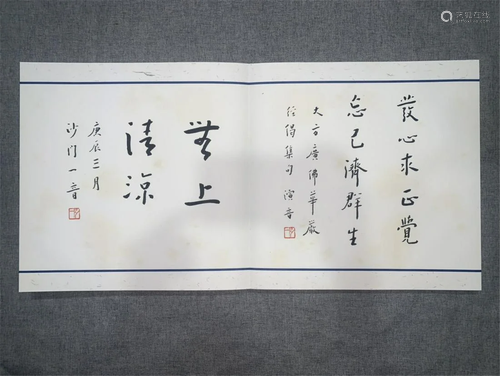 發心求正覺
忘己濟群生
大方廣佛華嚴
經偈集句 演音
無上
清涼
庚辰三月
沙門一音